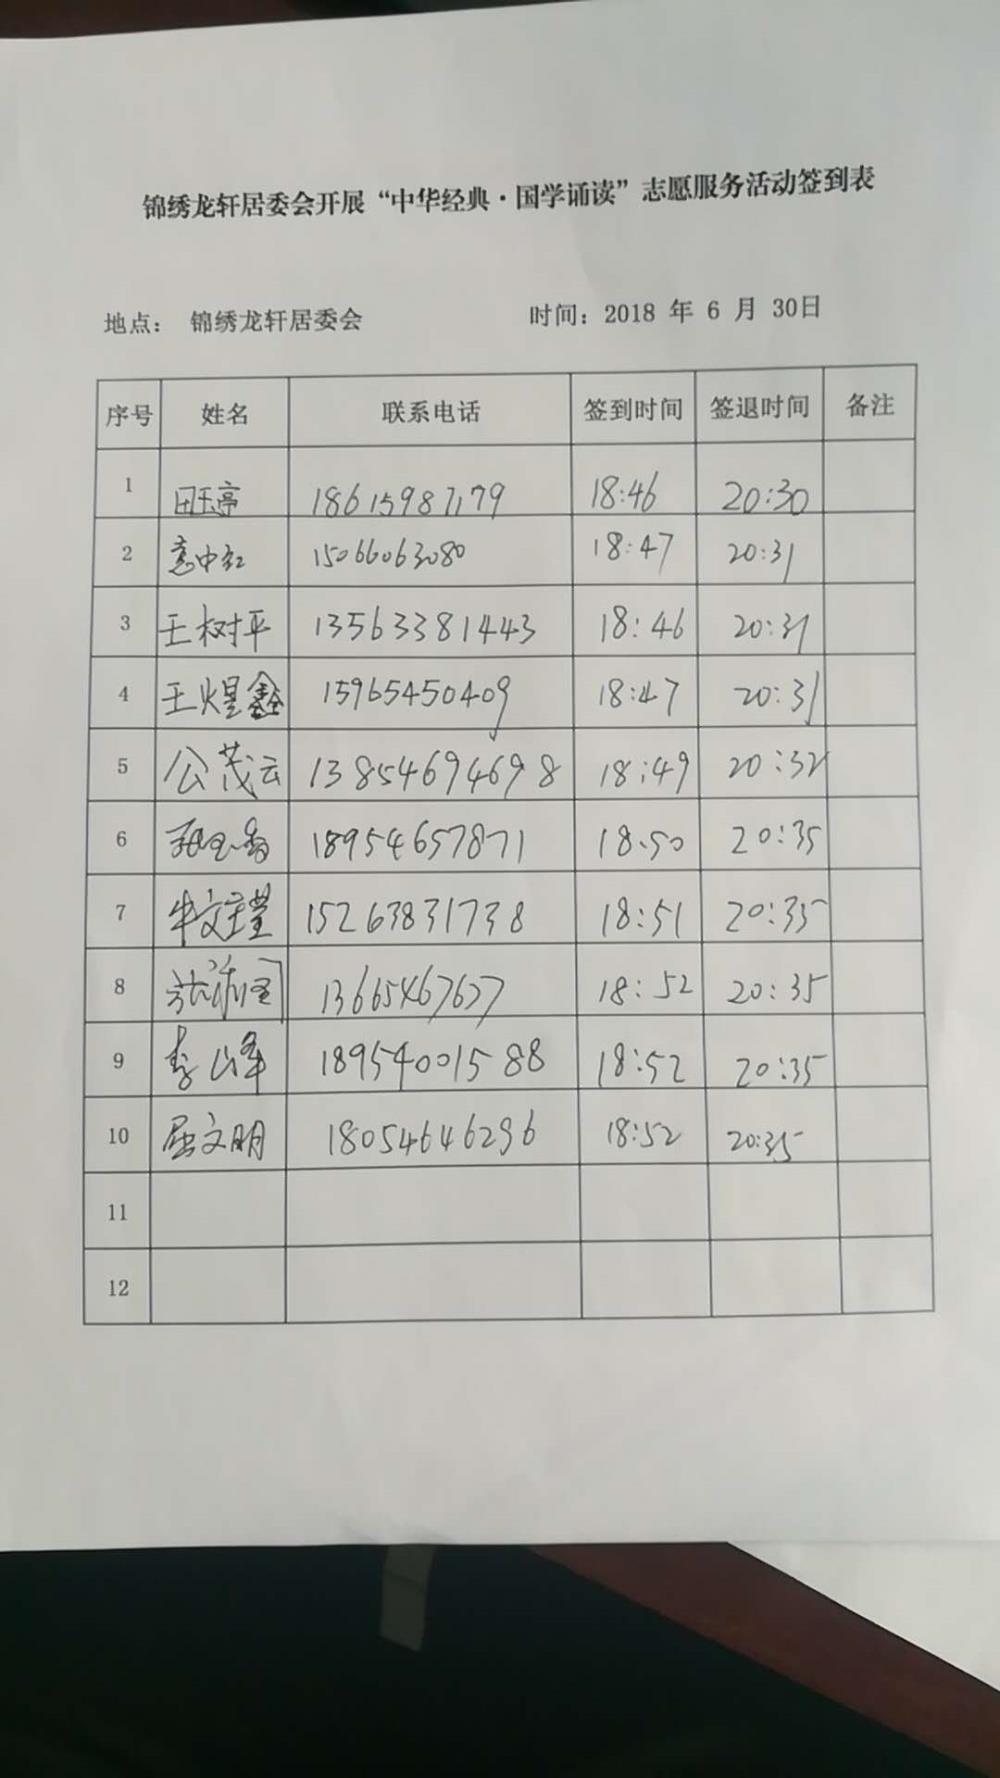 锦绣龙轩居委会开展“中华经典·国学诵读”志愿服务活动签到表
地点： 锦绣龙轩居委会 时间：2018 年 6 月 30日
序号 姓名 联系电话 签到时间 签退时间 备注
1 田玉亭 18615987179 18:46 20:30
2 15066063080 18:47 20:31
3 王树平 13563381443 18:46 20:31
4 王煜鑫 15965450409 18:47 20:31
5 公茂云 13854694698 18:49 20:32
6 18954657871 18:50 20:35
7 15263831738 18:51 20:35
8 13665467677 18:52 20:35
9 李峰 18954001588 18:52 20:35
10 屈文明 18054646296 18:52 20:35
11
12